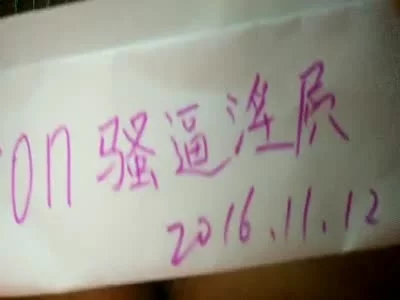 on 骚逼淫尿
2016.11.12